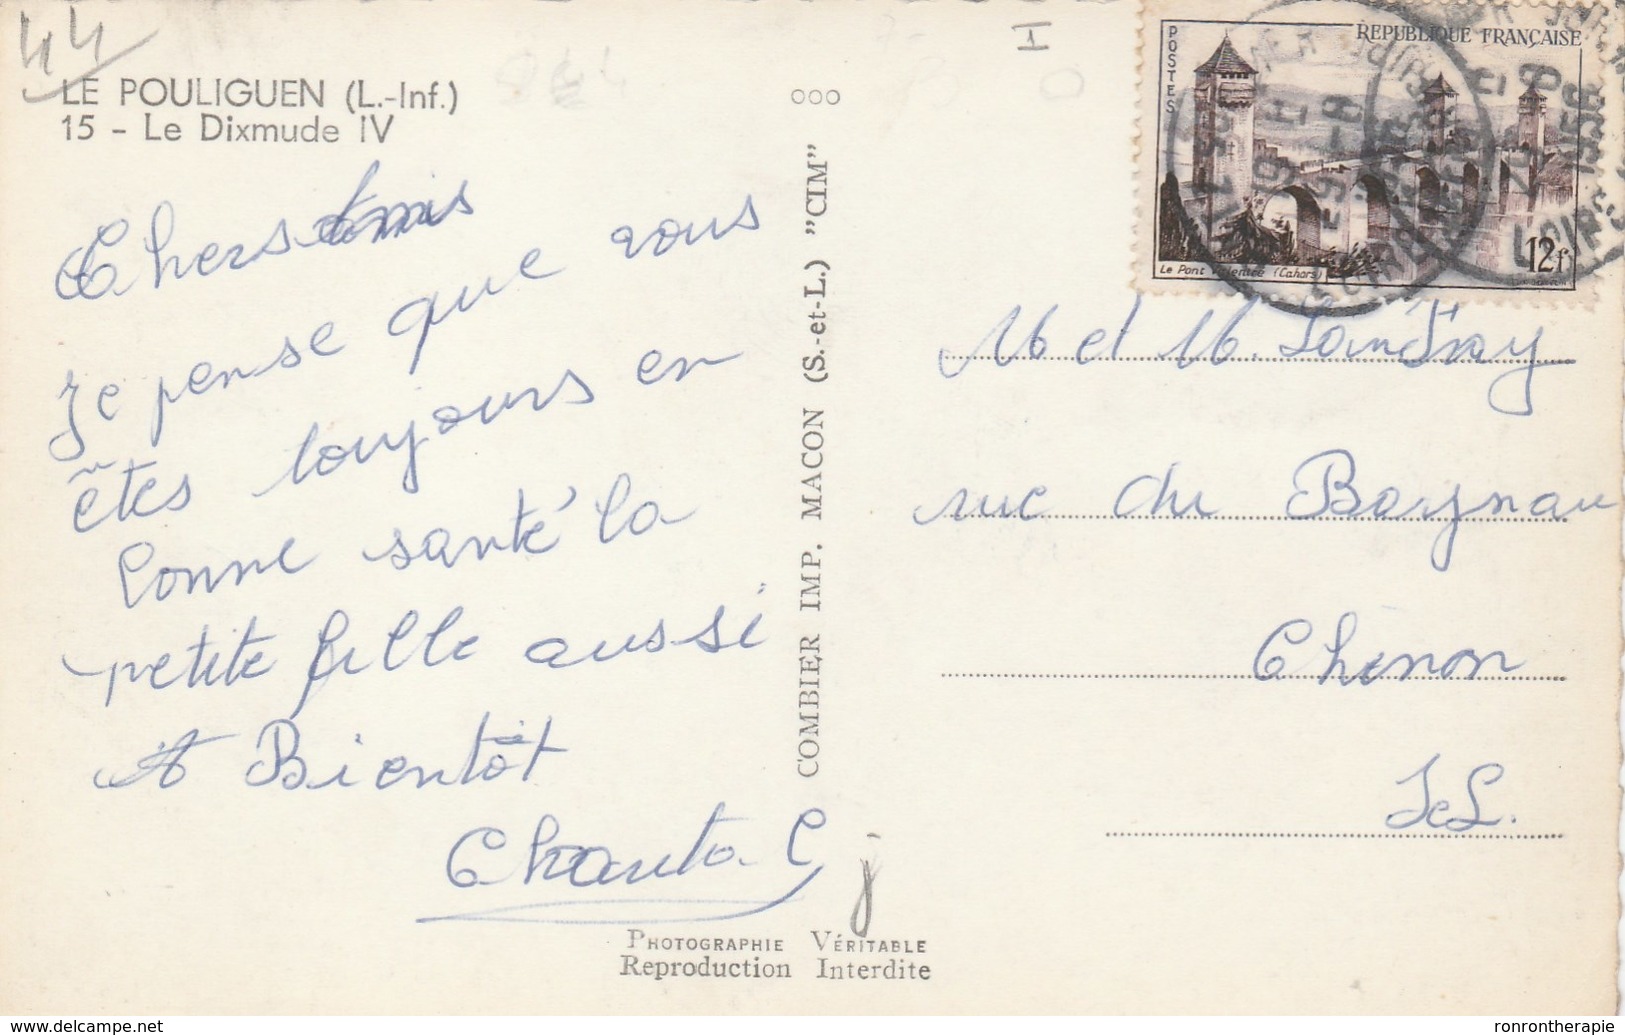 44
LE POULIGUEN (L.-Inf.)
15 - Le Dixmude IV
Chers amis
Je pense que vous
êtes toujours en
bonne santé la
petite fille aussi
A Bientôt
Chantal
COMBIER IMP. MACON (S.-et-L.) "CIM"
PHOTOGRAPHIE VÉRITABLE
Reproduction Interdite
I
POSTES
REPUBLIQUE FRANÇAISE
Le Pont Valentré (Cahors)
12f
M et M. Landray
rue du Bagnau
Chinon
I e L.
www.delcampe.net
ronrontherapie